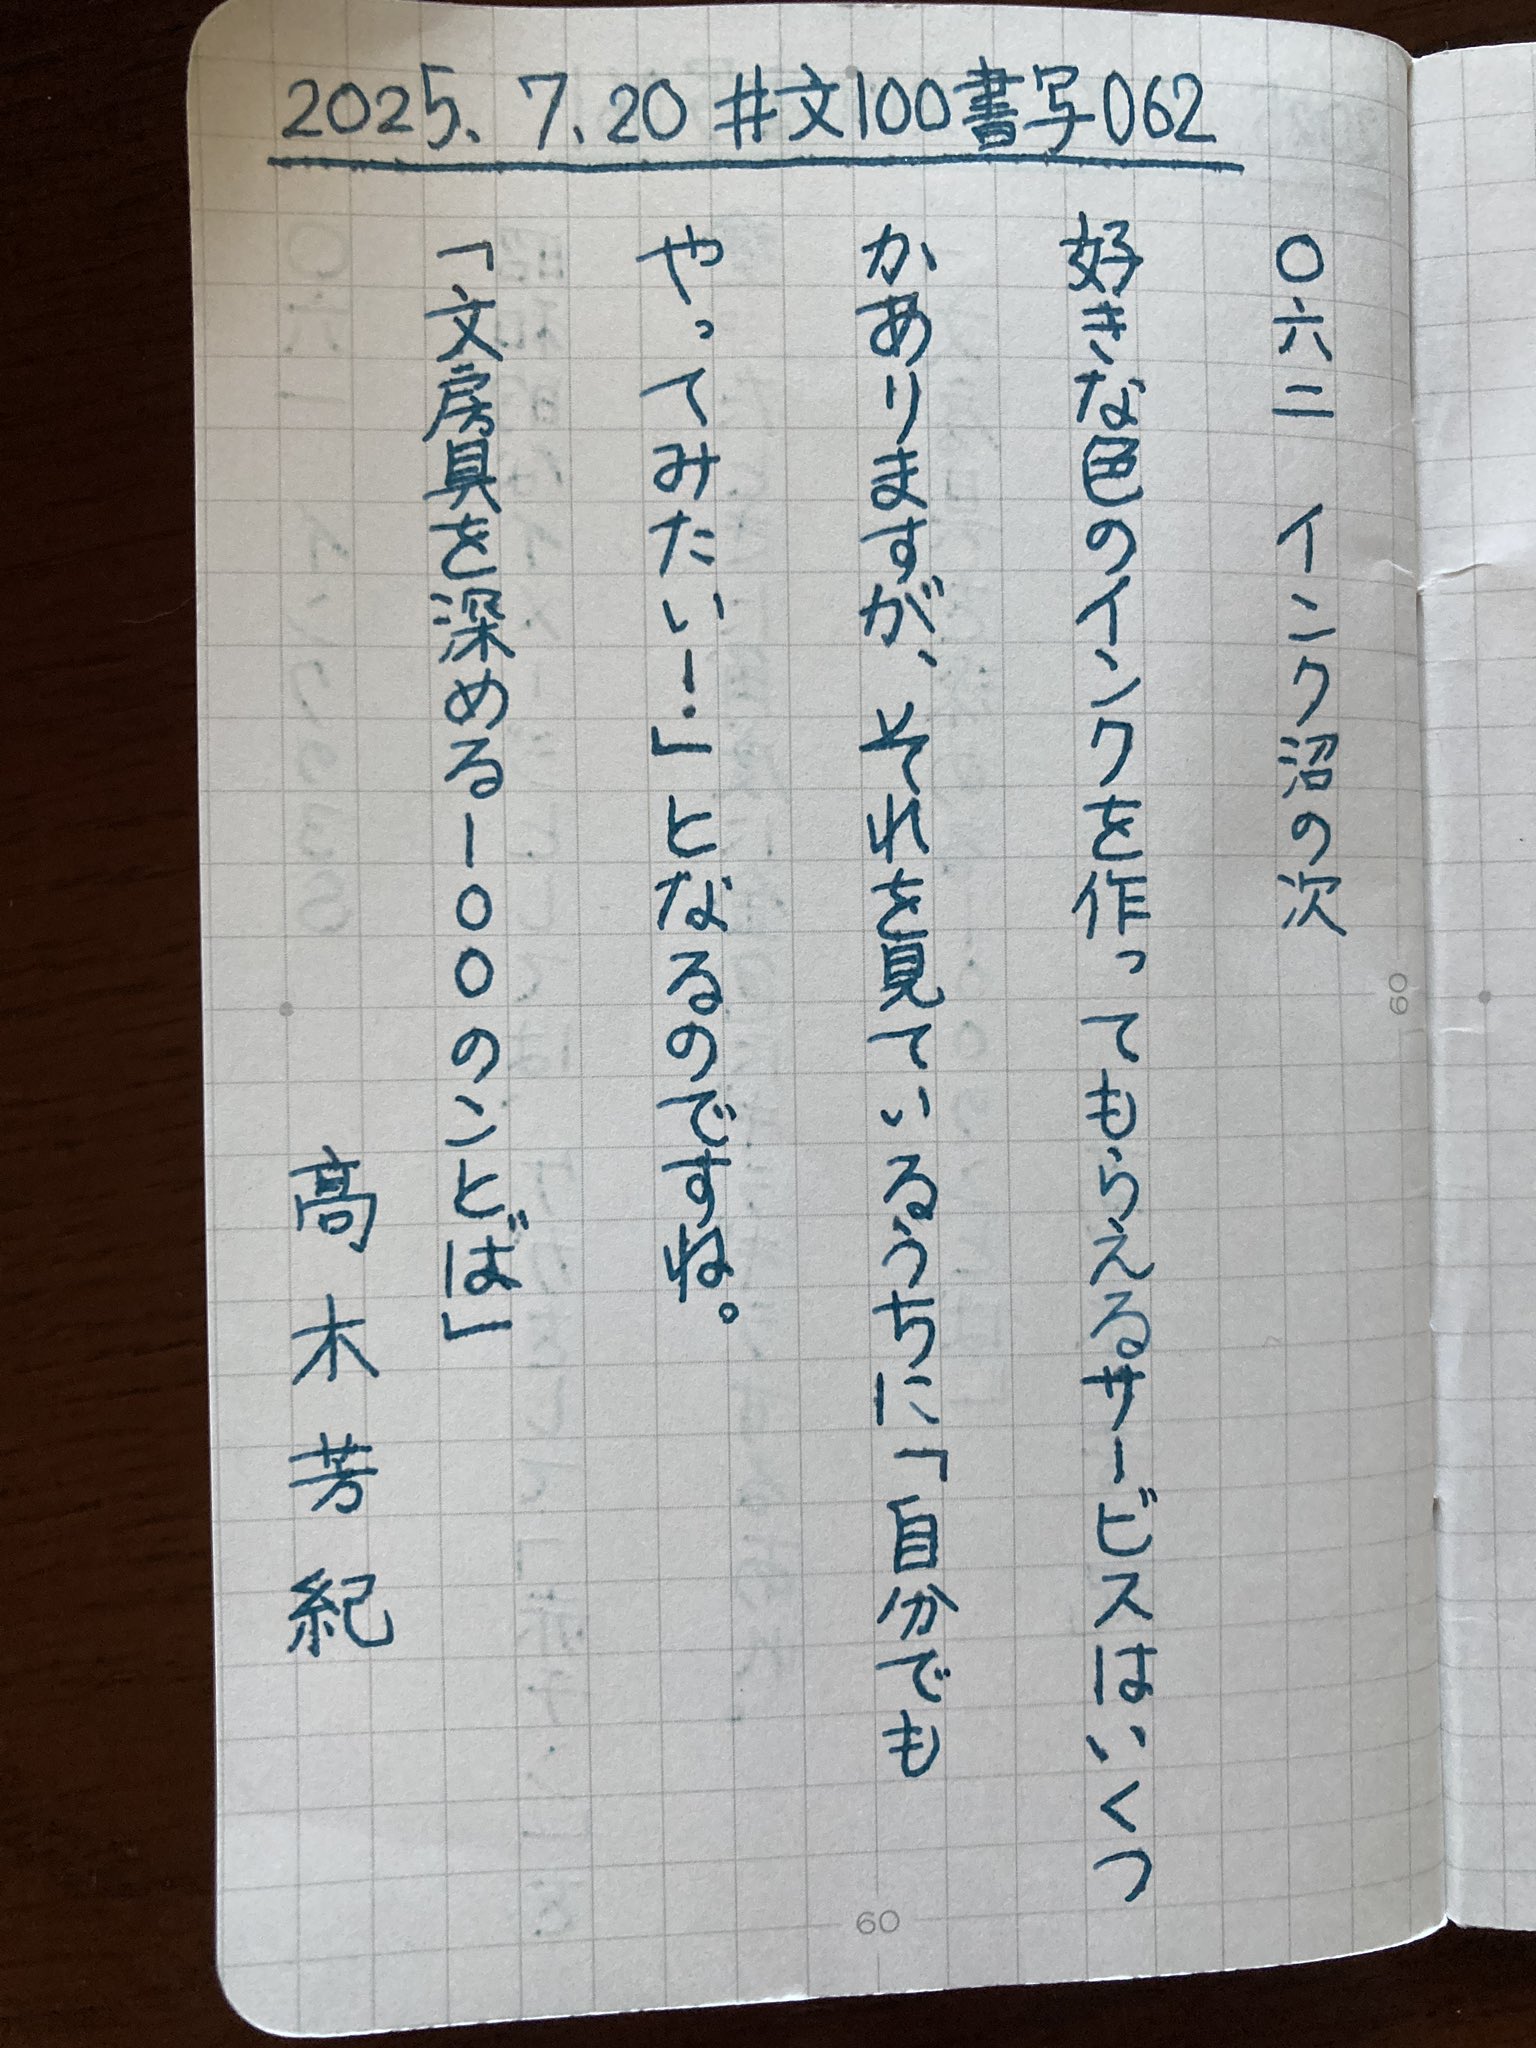 2025.7.20 #文100書写062
〇六二 インク沼の次
好きな色のインクを作ってもらえるサービスはいくつ
かありますが、それを見ているうちに「自分でも
やってみたい!」となるのですね。
「文房具を深める一〇〇のことば」
高木芳紀
60
60